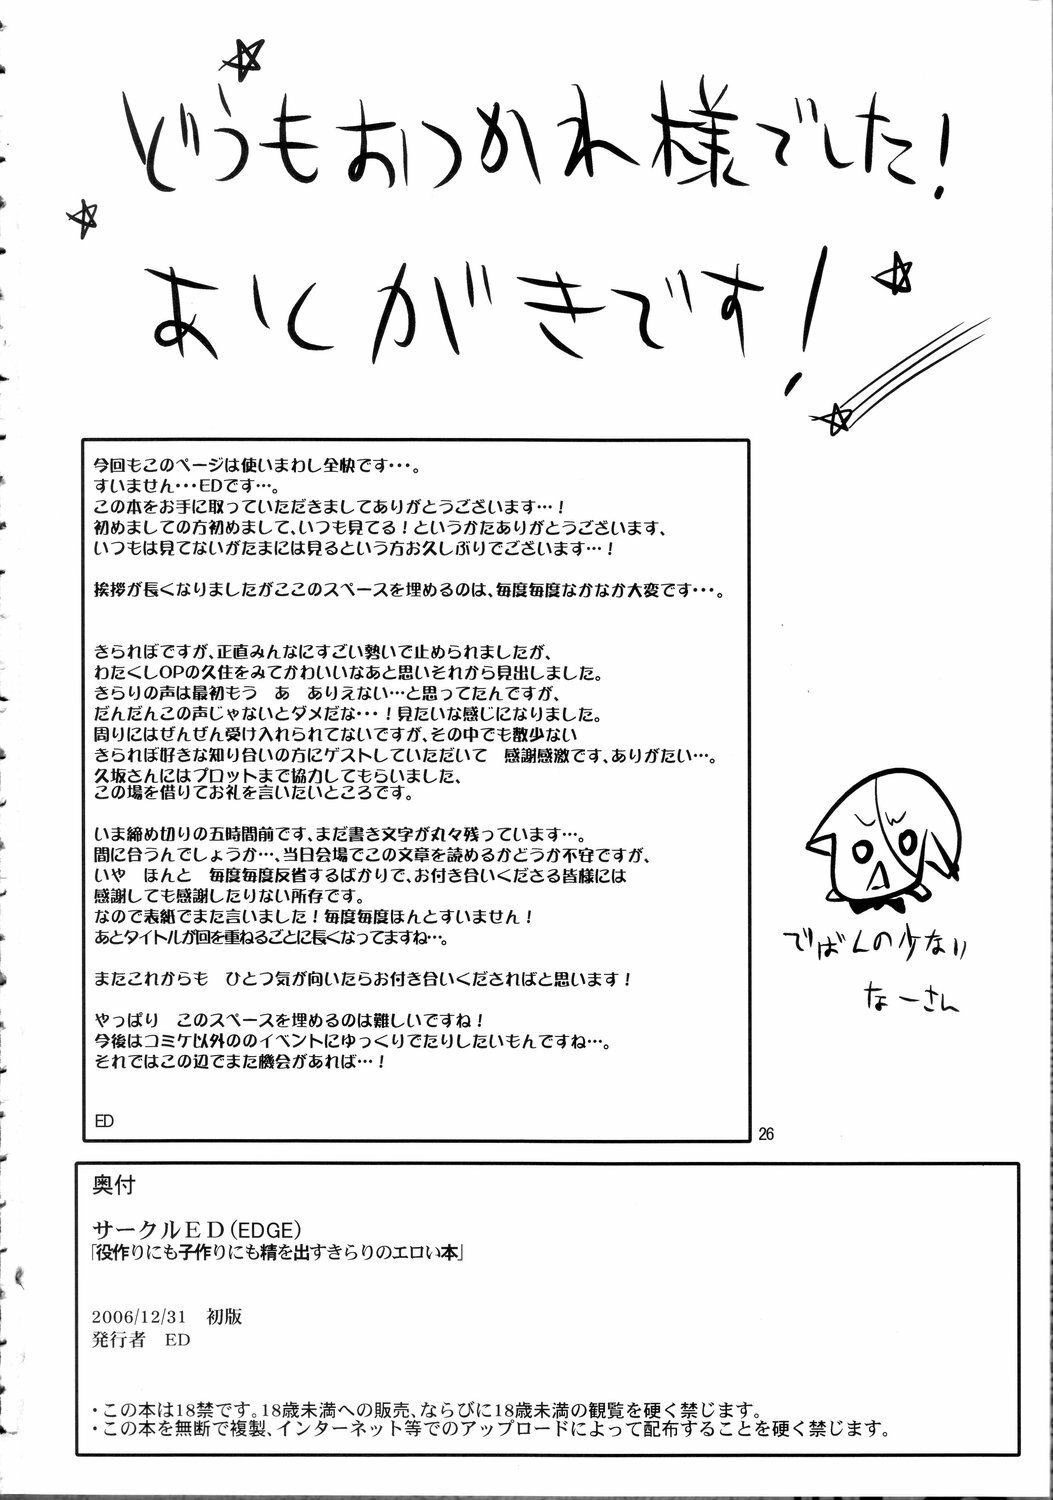 どうもおつかれ様でした!
あとがきです!
今回もこのページは使いまわし全快です・・・。
すいません・・・EDです…。
この本をお手に取っていただきましてありがとうございます…!
初めましての方初めまして、いつも見てる!というかたありがとうございます、
いつもは見てないがたまには見るという方お久しぶりでございます…!
挨拶が長くなりましたがここのスペースを埋めるのは、毎度毎度なかなか大変です・・・。
きられぼですが、正直みんなにすごい勢いで止められましたが、
わたくしOPの久住をみてかわいいなあと思いそれから見出しました。
きらりの声は最初もう　あ　ありえない…と思ってたんですが、
だんだんこの声じゃないとダメだな・・・!見たいな感じになりました。
周りにはぜんぜん受け入れられてないですが、その中でも数少ない
きられぼ好きな知り合いの方にゲストしていただいて　感謝感激です、ありがたい…。
久坂さんにはプロットまで協力してもらいました、
この場を借りてお礼を言いたいところです。
いま締め切りの五時間前です、まだ書き文字が丸々残っています…。
間に合うんでしょうか…、当日会場でこの文章を読めるかどうか不安ですが、
いや　ほんと　毎度毎度反省するばかりで、お付き合いくださる皆様には
感謝しても感謝したりない所存です。
なので表紙でまた言いました!毎度毎度ほんとすいません!
あとタイトルが回を重ねるごとに長くなってますね…。
またこれからも　ひとつ気が向いたらお付き合いくださればと思います!
やっぱり　このスペースを埋めるのは難しいですね!
今後はコミケ以外ののイベントにゆっくりでたりしたいもんですね…。
それではこの辺でまた機会があれば…!
ED
でばんの少ない
なーさん
26
奥付
サークルED(EDGE)
「役作りにも子作りにも精を出すきらりのエロい本」
2006/12/31　初版
発行者　ED
・この本は18禁です。18歳未満への販売、ならびに18歳未満の観覧を硬く禁じます。
・この本を無断で複製、インターネット等でのアップロードによって配布することを硬く禁じます。